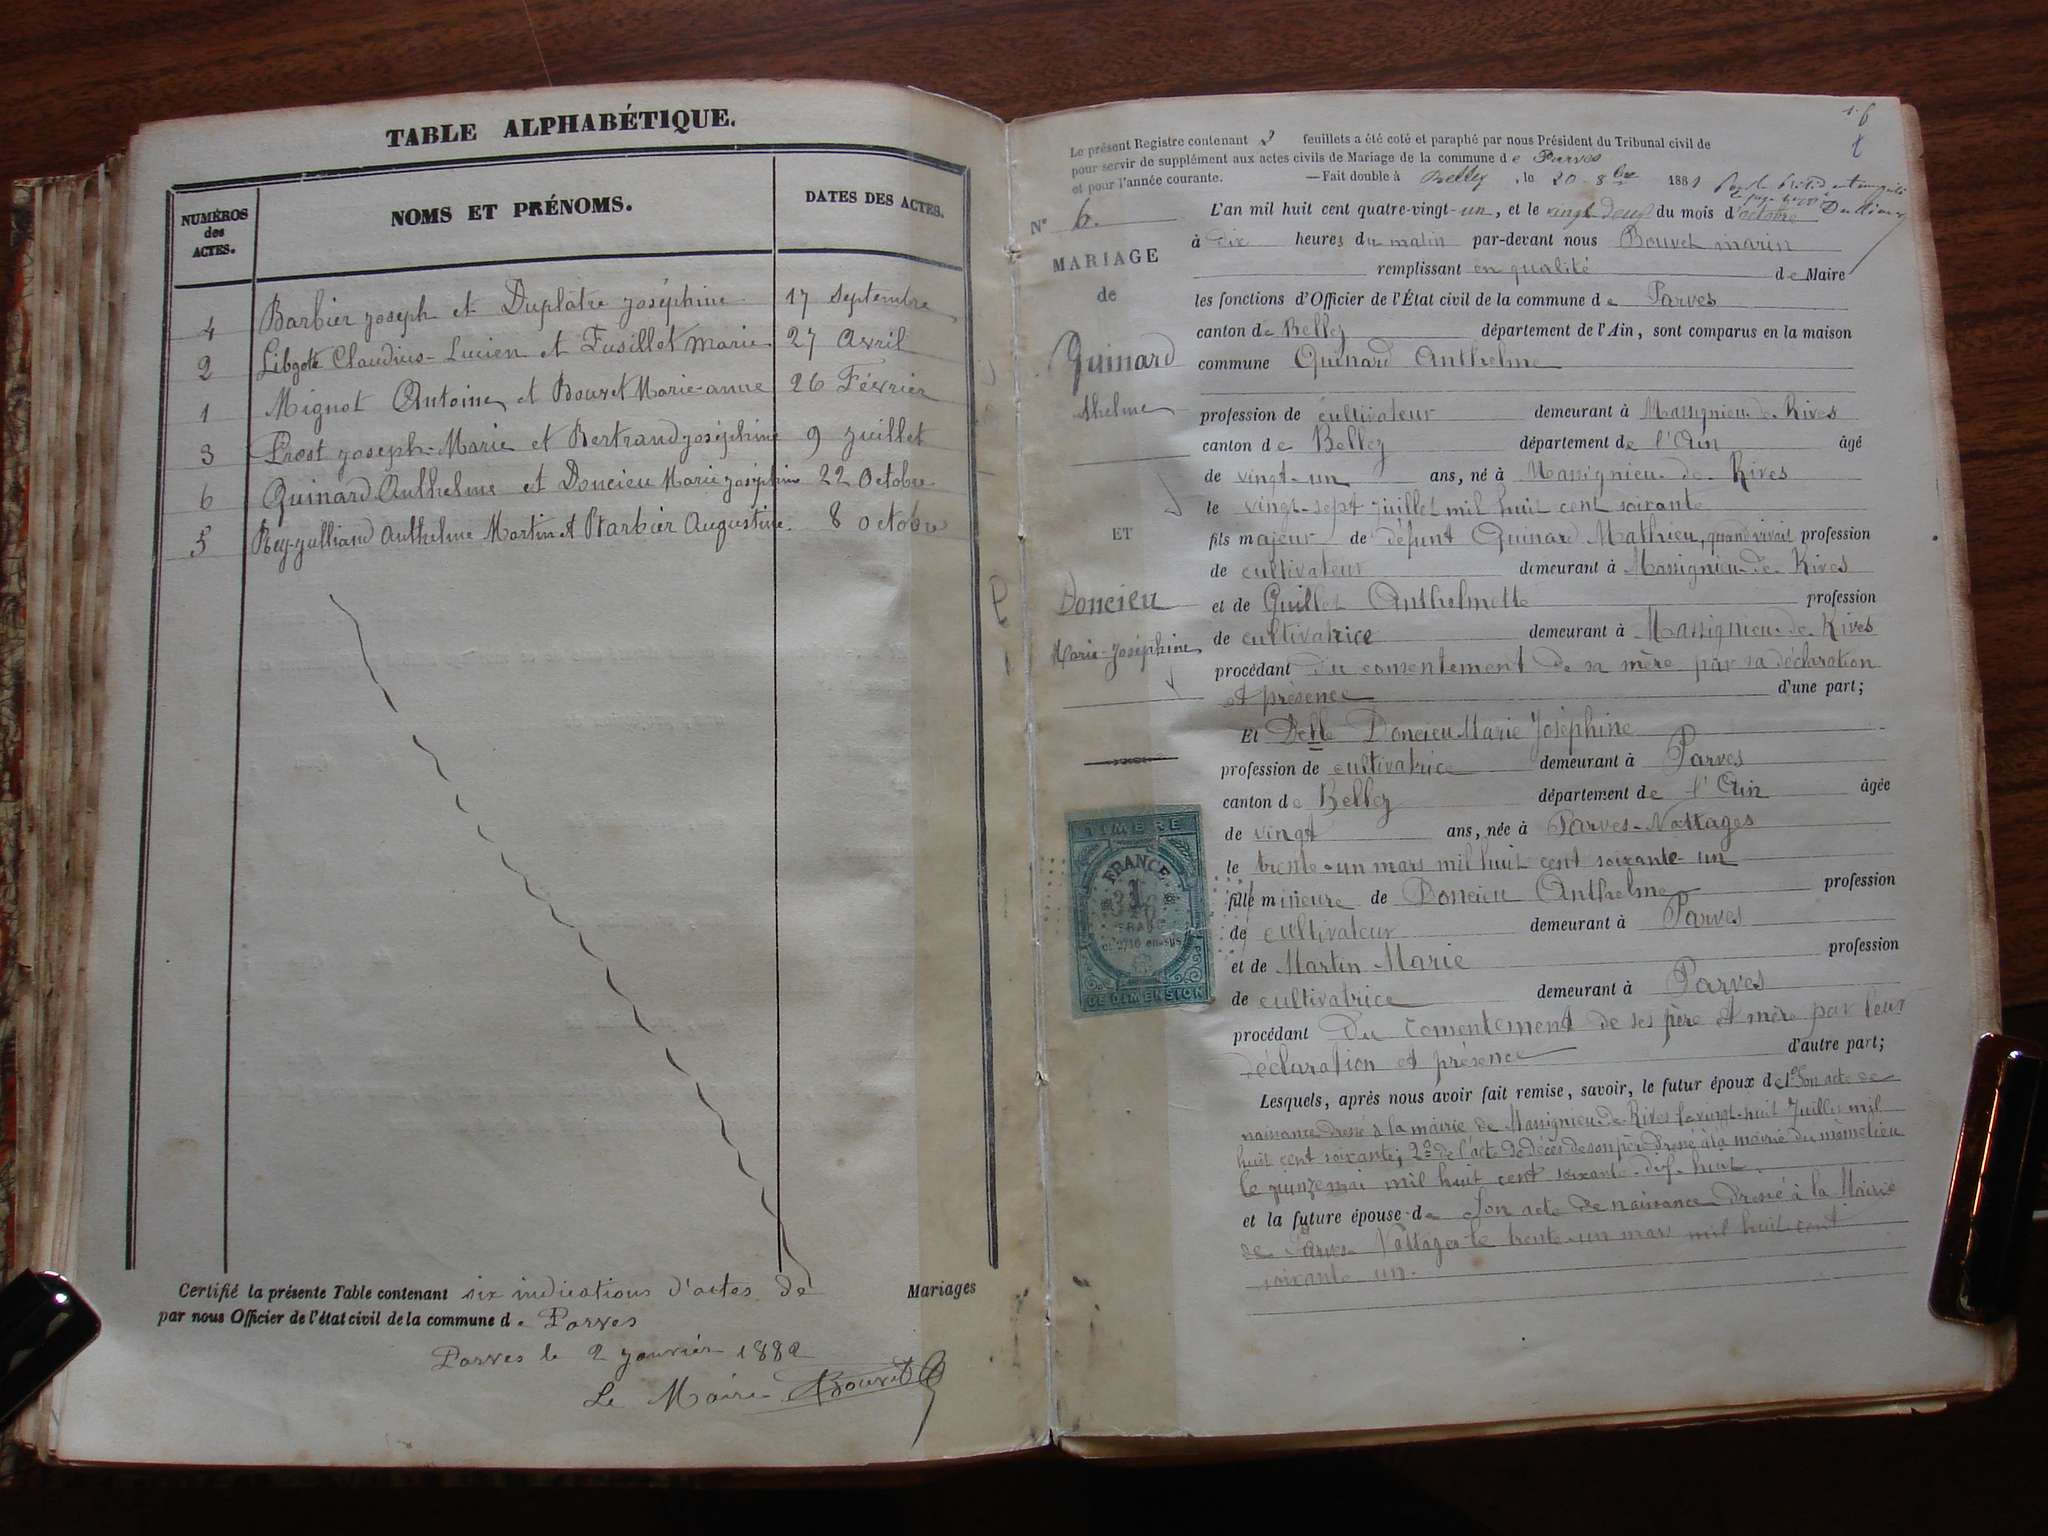 TABLE ALPHABÉTIQUE.
NUMÉROS des ACTES. NOMS ET PRÉNOMS. DATES DES ACTES.
4 Barbier Joseph et Duplatre Joséphine 17 Septembre
2 Claudius-Lucien et Fusillet Marie 27 Avril
1 Mignot Antoine et Bouvet Marie-anne 26 Février
3 Prost Joseph-Marie et Bertrand Joséphine 9 Juillet
6 Quinard Anthelme et Doncieu Marie Joséphine 22 Octobre
5 Rey-Julliand Anthelme Martin et Barbier Augustine 8 octobre
Certifié la présente Table contenant six indications d'actes de Mariages
par nous Officier de l'état civil de la commune de Parves
Parves le 2 Janvier 1882
Le Maire Bouvet
Le présent Registre contenant 2 feuillets a été coté et paraphé par nous Président du Tribunal civil de
pour servir de supplément aux actes civils de Mariage de la commune de Parves
et pour l'année courante. —Fait double à Belley, le 20 8bre 1881
N° 6.
MARIAGE
de
Quinard
thelme
ET
Doncieu
Marie-Joséphine
L'an mil huit cent quatre-vingt-un, et le vingt deux du mois d'octobre
à dix heures du matin par-devant nous Bouvet marin
remplissant en qualité de Maire
les fonctions d'Officier de l'État civil de la commune de Parves
canton de Belley département de l'Ain, sont comparus en la maison
commune Quinard Anthelme
profession de cultivateur demeurant à Massignieu-de-Rives
canton de Belley département de l'Ain âgé
de vingt-un ans, né à Massignieu-de-Rives
le vingt-sept juillet mil huit cent soixante
fils majeur de défunt Quinard Mathieu, quand vivait profession
de cultivateur demeurant à Massignieu-de-Rives
et de Guillet Anthelmette profession
de cultivatrice demeurant à Massignieu-de-Rives
procédant du consentement de sa mère par sa déclaration
et présence d'une part;
Et Delle Doncieu Marie Joséphine
profession de cultivatrice demeurant à Parves
canton de Belley département de l'Ain âgée
de vingt ans, née à Parves-Nattages
le trente-un mars mil huit cent soixante-un
fille mineure de Doncieu Anthelme profession
de cultivateur demeurant à Parves
et de Martin Marie profession
de cultivatrice demeurant à Parves
procédant du consentement de ses père et mère par leur
déclaration et présence d'autre part;
Lesquels, après nous avoir fait remise, savoir, le futur époux de 1° son acte de
naissance dressé à la mairie de Massignieu-de-Rives le vingt-huit Juillet mil
huit cent soixante; 2° de l'acte de décès de son père dressé à la mairie du même lieu
le quinze mai mil huit cent soixante-dix-huit.
et la future épouse de son acte de naissance dressé à la Mairie
de Parves Nattages le trente-un mars mil huit cent
soixante-un.
TIMBRE
FRANCE
1
FRANC
2/10 en sus
DE DIMENSION